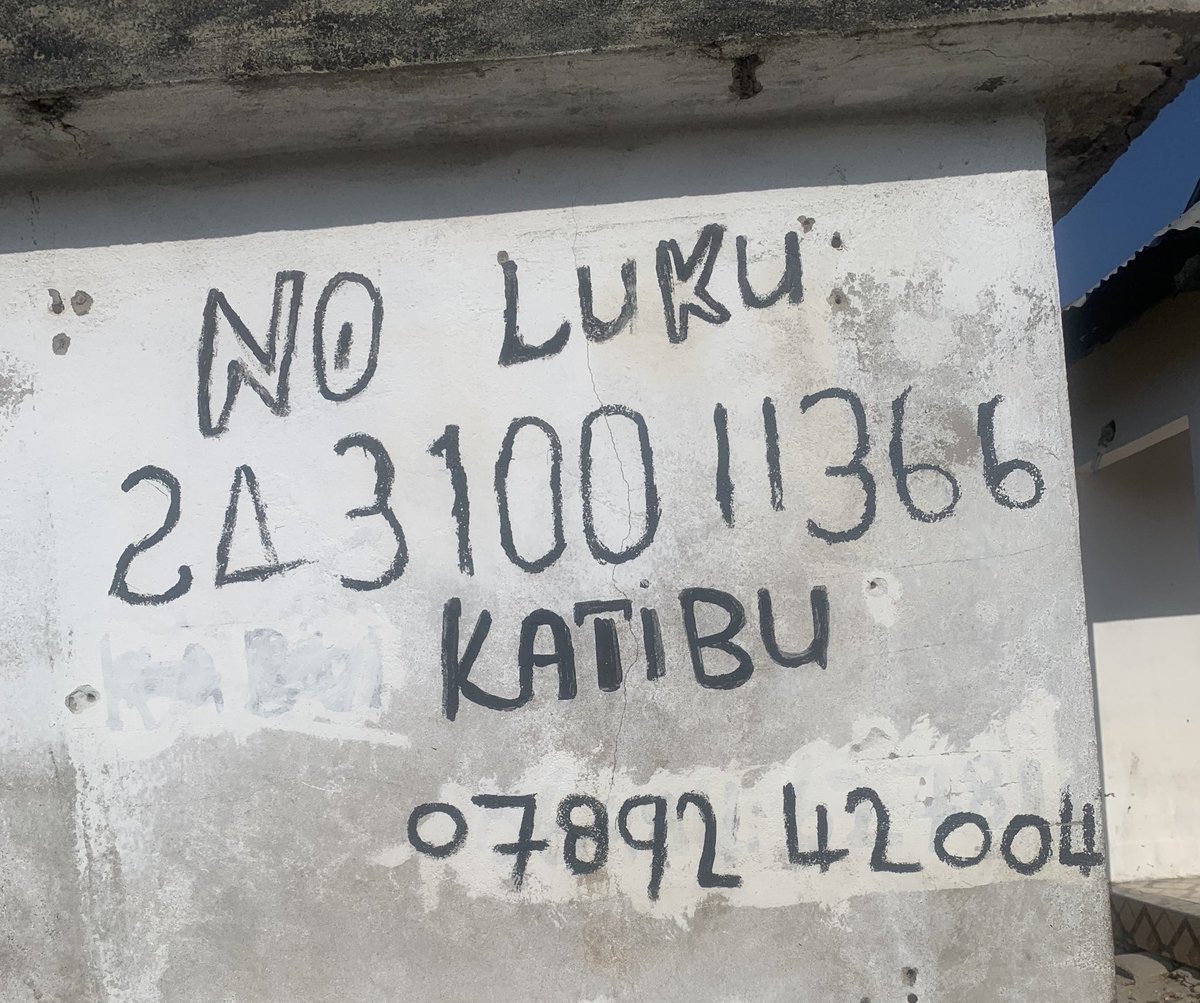 NO LUKU
24310011366
KATiBU
0789242004